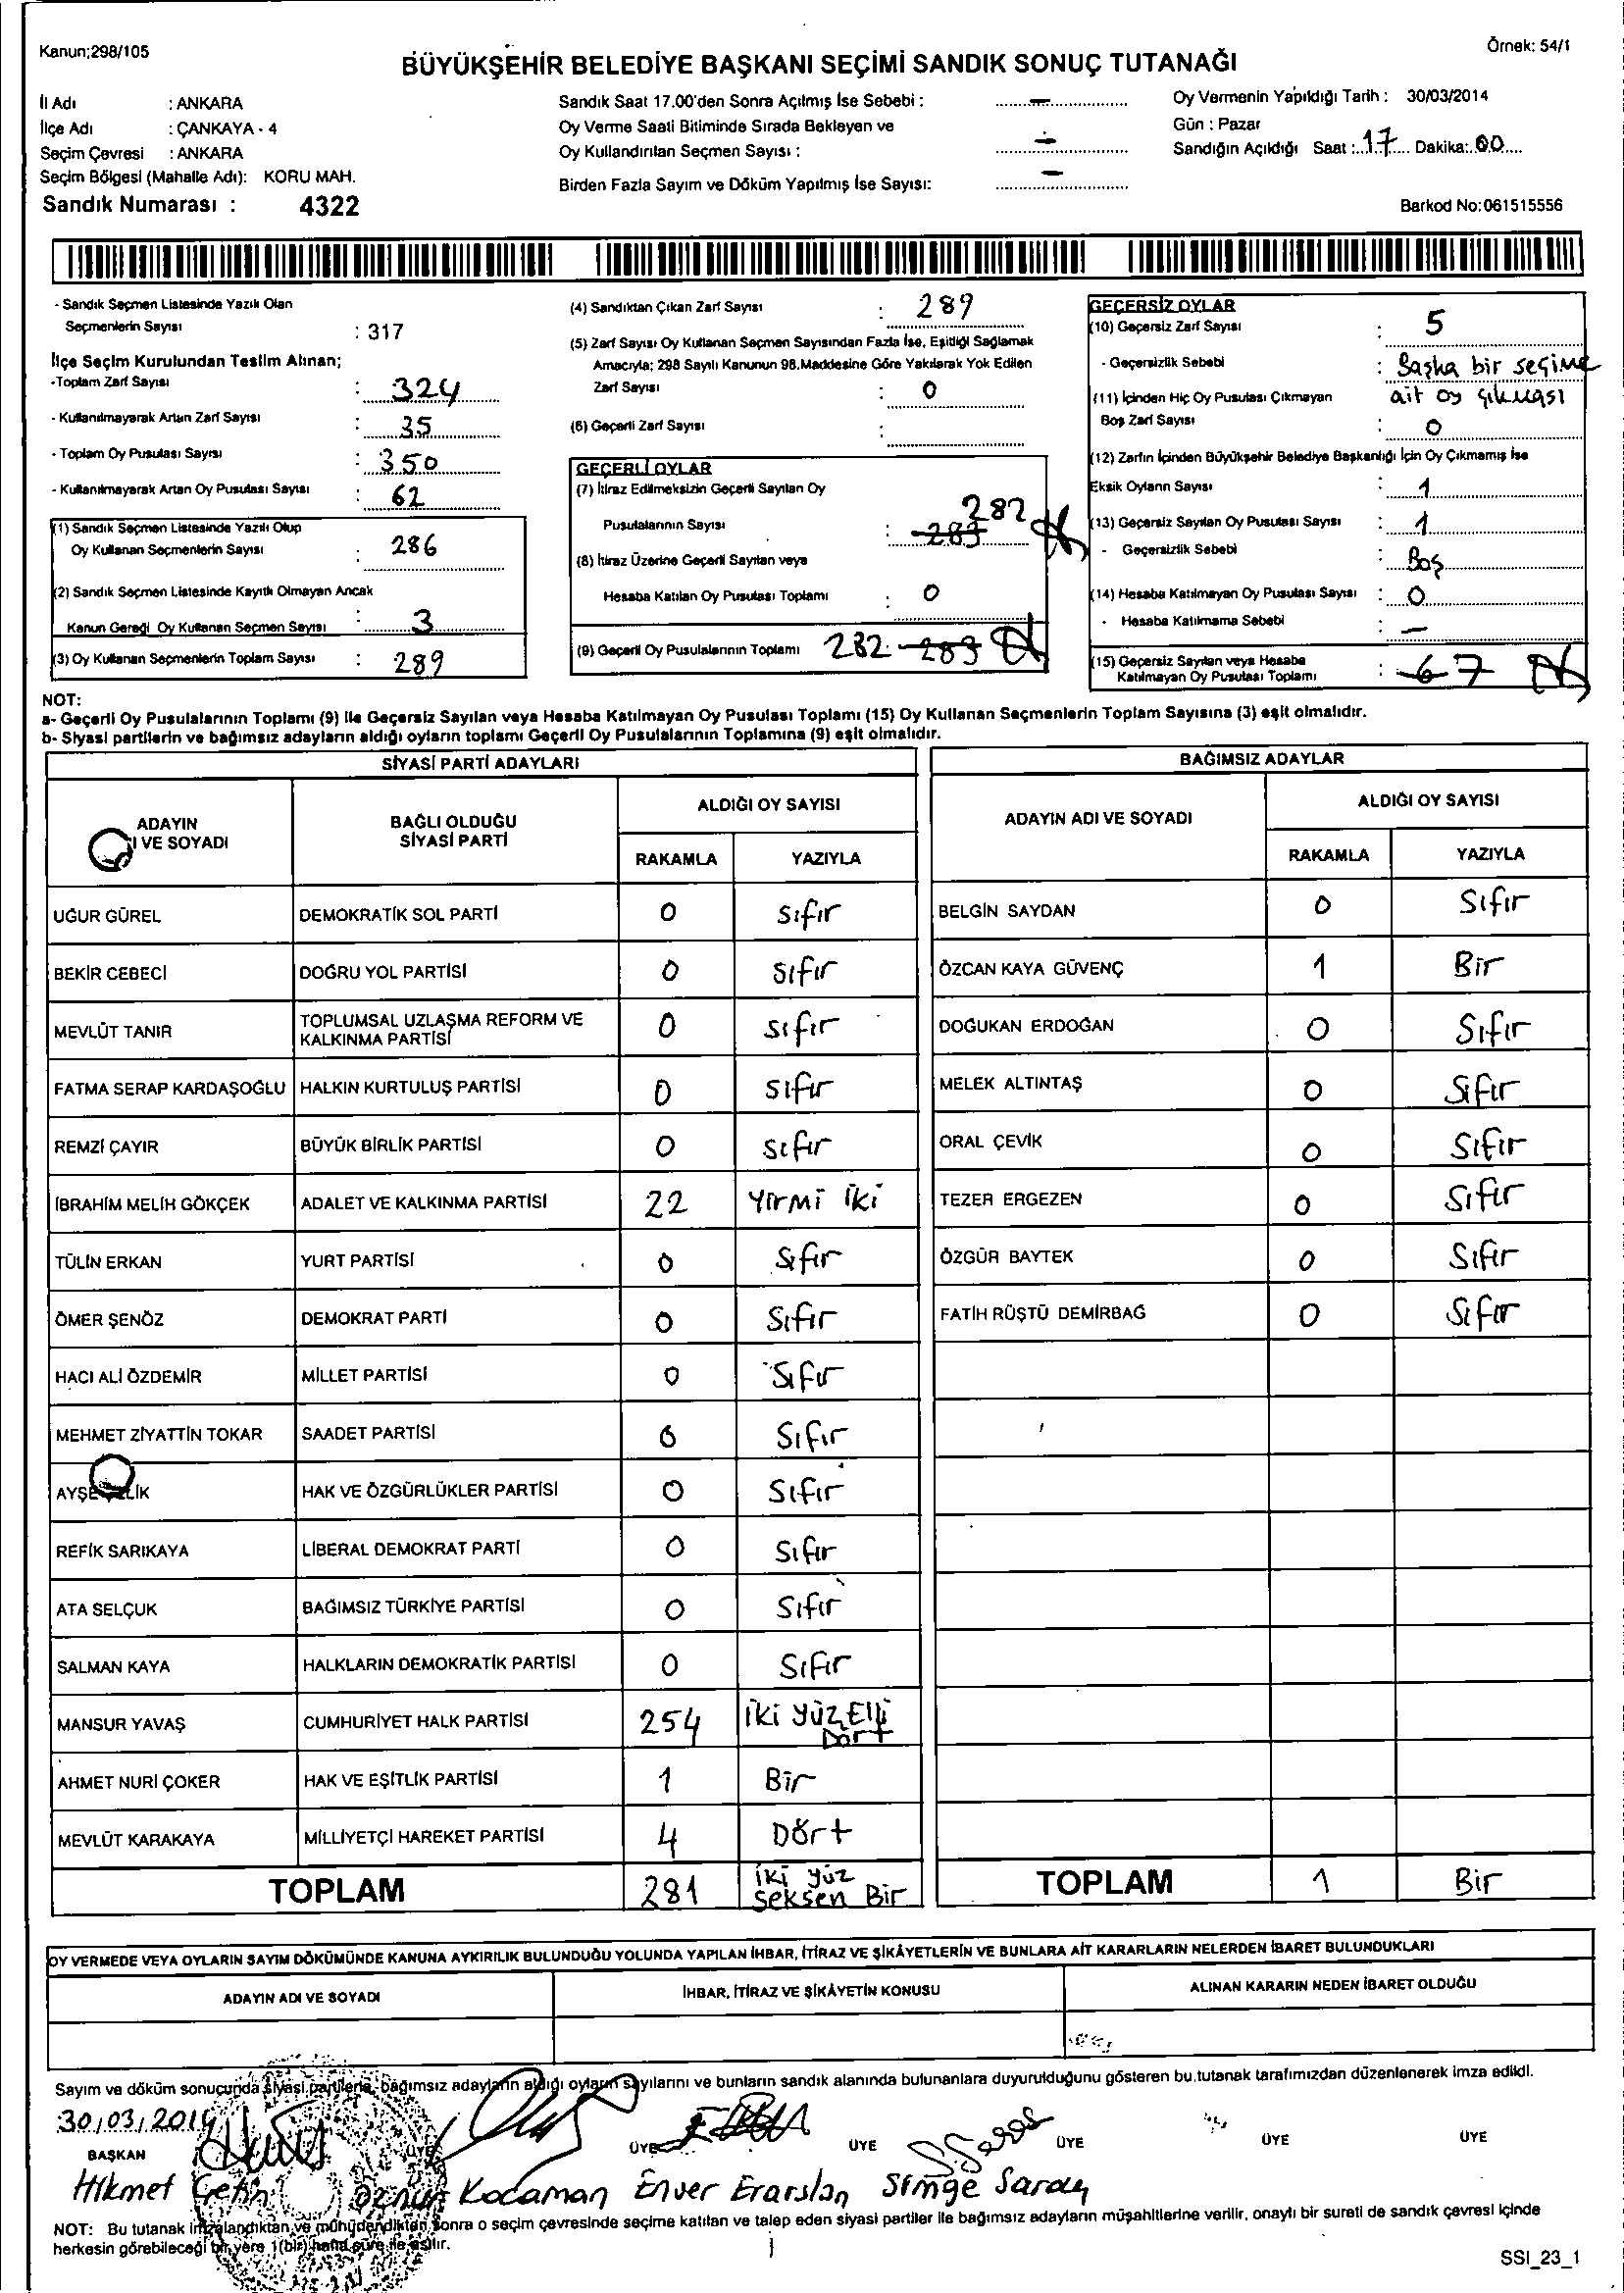 Kanun;298/105
Örnek: 54/1
BÜYÜKŞEHİR BELEDİYE BAŞKANI SEÇİMİ SANDIK SONUÇ TUTANAĞI
İl Adı : ANKARA
İlçe Adı : ÇANKAYA - 4
Seçim Çevresi : ANKARA
Seçim Bölgesi (Mahalle Adı): KORU MAH.
Sandık Numarası : 4322
Sandık Saat 17.00'den Sonra Açılmış İse Sebebi : —
Oy Verme Saati Bitiminde Sırada Bekleyen ve
Oy Kullandırılan Seçmen Sayısı : —
Birden Fazla Sayım ve Döküm Yapılmış İse Sayısı: —
Oy Vermenin Yapıldığı Tarih : 30/03/2014
Gün : Pazar
Sandığın Açıldığı Saat : 17 Dakika: 00
Barkod No:061515556
- Sandık Seçmen Listesinde Yazılı Olan
Seçmenlerin Sayısı : 317
İlçe Seçim Kurulundan Teslim Alınan;
-Toplam Zarf Sayısı : 324
- Kullanılmayarak Artan Zarf Sayısı : 35
- Toplam Oy Pusulası Sayısı : 350
- Kullanılmayarak Artan Oy Pusulası Sayısı : 62
(1) Sandık Seçmen Listesinde Yazılı Olup
Oy Kullanan Seçmenlerin Sayısı : 286
(2) Sandık Seçmen Listesinde Kayıtlı Olmayan Ancak
Kanun Gereği Oy Kullanan Seçmen Sayısı : 3
(3) Oy Kullanan Seçmenlerin Toplam Sayısı : 289
(4) Sandıktan Çıkan Zarf Sayısı : 289
(5) Zarf Sayısı Oy Kullanan Seçmen Sayısından Fazla İse, Eşitliği Sağlamak
Amacıyla; 298 Sayılı Kanunun 98.Maddesine Göre Yakılarak Yok Edilen
Zarf Sayısı : 0
(6) Geçerli Zarf Sayısı :
GEÇERLİ OYLAR
(7) İtiraz Edilmeksizin Geçerli Sayılan Oy
Pusulalarının Sayısı : 283 282
(8) İtiraz Üzerine Geçerli Sayılan veya
Hesaba Katılan Oy Pusulası Toplamı : 0
(9) Geçerli Oy Pusulalarının Toplamı 282 283
GEÇERSİZ OYLAR
(10) Geçersiz Zarf Sayısı : 5
- Geçersizlik Sebebi : Başka bir seçime
ait oy çıkması
(11) İçinden Hiç Oy Pusulası Çıkmayan
Boş Zarf Sayısı : 0
(12) Zarfın İçinden Büyükşehir Belediye Başkanlığı İçin Oy Çıkmamış İse
Eksik Oyların Sayısı : 1
(13) Geçersiz Sayılan Oy Pusulası Sayısı : 1
- Geçersizlik Sebebi : Boş
(14) Hesaba Katılmayan Oy Pusulası Sayısı : 0
- Hesaba Katılmama Sebebi : —
(15) Geçersiz Sayılan veya Hesaba
Katılmayan Oy Pusulası Toplamı : 6 7
NOT:
a- Geçerli Oy Pusulalarının Toplamı (9) ile Geçersiz Sayılan veya Hesaba Katılmayan Oy Pusulası Toplamı (15) Oy Kullanan Seçmenlerin Toplam Sayısına (3) eşit olmalıdır.
b- Siyasi partilerin ve bağımsız adayların aldığı oyların toplamı Geçerli Oy Pusulalarının Toplamına (9) eşit olmalıdır.
SİYASİ PARTİ ADAYLARI
ADAYIN
I VE SOYADI
BAĞLI OLDUĞU
SİYASİ PARTİ
ALDIĞI OY SAYISI
RAKAMLA YAZIYLA
UĞUR GÜREL DEMOKRATİK SOL PARTİ 0 Sıfır
BEKİR CEBECİ DOĞRU YOL PARTİSİ 0 Sıfır
MEVLÜT TANIR TOPLUMSAL UZLAŞMA REFORM VE
KALKINMA PARTİSİ 0 Sıfır
FATMA SERAP KARDAŞOĞLU HALKIN KURTULUŞ PARTİSİ 0 Sıfır
REMZİ ÇAYIR BÜYÜK BİRLİK PARTİSİ 0 Sıfır
İBRAHİM MELİH GÖKÇEK ADALET VE KALKINMA PARTİSİ 22 Yirmi iki
TÜLİN ERKAN YURT PARTİSİ 0 Sıfır
ÖMER ŞENÖZ DEMOKRAT PARTİ 0 Sıfır
HACI ALİ ÖZDEMİR MİLLET PARTİSİ 0 Sıfır
MEHMET ZİYATTİN TOKAR SAADET PARTİSİ 0 Sıfır
AYŞE ÇELİK HAK VE ÖZGÜRLÜKLER PARTİSİ 0 Sıfır
REFİK SARIKAYA LİBERAL DEMOKRAT PARTİ 0 Sıfır
ATA SELÇUK BAĞIMSIZ TÜRKİYE PARTİSİ 0 Sıfır
SALMAN KAYA HALKLARIN DEMOKRATİK PARTİSİ 0 Sıfır
MANSUR YAVAŞ CUMHURİYET HALK PARTİSİ 254 İki yüz Elli
Dört
AHMET NURİ ÇOKER HAK VE EŞİTLİK PARTİSİ 1 Bir
MEVLÜT KARAKAYA MİLLİYETÇİ HAREKET PARTİSİ 4 Dört
TOPLAM 281 iki yüz
seksen Bir
BAĞIMSIZ ADAYLAR
ADAYIN ADI VE SOYADI
ALDIĞI OY SAYISI
RAKAMLA YAZIYLA
BELGİN SAYDAN 0 Sıfır
ÖZCAN KAYA GÜVENÇ 1 Bir
DOĞUKAN ERDOĞAN 0 Sıfır
MELEK ALTINTAŞ 0 Sıfır
ORAL ÇEVİK 0 Sıfır
TEZER ERGEZEN 0 Sıfır
ÖZGÜR BAYTEK 0 Sıfır
FATİH RÜŞTÜ DEMİRBAĞ 0 Sıfır
TOPLAM 1 Bir
OY VERMEDE VEYA OYLARIN SAYIM DÖKÜMÜNDE KANUNA AYKIRILIK BULUNDUĞU YOLUNDA YAPILAN İHBAR, İTİRAZ VE ŞİKÂYETLERİN VE BUNLARA AİT KARARLARIN NELERDEN İBARET BULUNDUKLARI
ADAYIN ADI VE SOYADI İHBAR, İTİRAZ VE ŞİKÂYETİN KONUSU ALINAN KARARIN NEDEN İBARET OLDUĞU
Sayım ve döküm sonucunda siyasi partilerle, bağımsız adayların aldığı oyların sayılarını ve bunların sandık alanında bulunanlara duyurulduğunu gösteren bu tutanak tarafımızdan düzenlenerek imza edildi.
30/03/2014
BAŞKAN ÜYE ÜYE ÜYE ÜYE ÜYE ÜYE
Hikmet Çetin Öznur Kocaman Enver Erarslan Simge Saray
NOT: Bu tutanak imzalandıktan ve mühürlendikten sonra o seçim çevresinde seçime katılan ve talep eden siyasi partiler ile bağımsız adayların müşahitlerine verilir, onaylı bir sureti de sandık çevresi içinde
herkesin görebileceği bir yere 1(bir) hafta süre ile asılır.
SSI_23_1